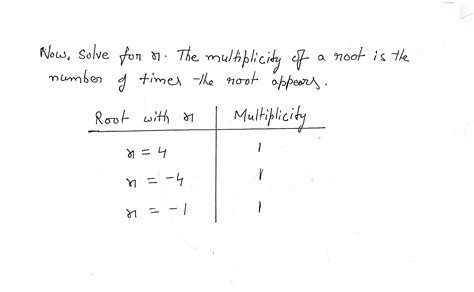 Now, solve for x. The multiplicity of a root is the
number of times the root appears.
Root with x Multiplicity
x = 4 1
x = -4 1
x = -1 1